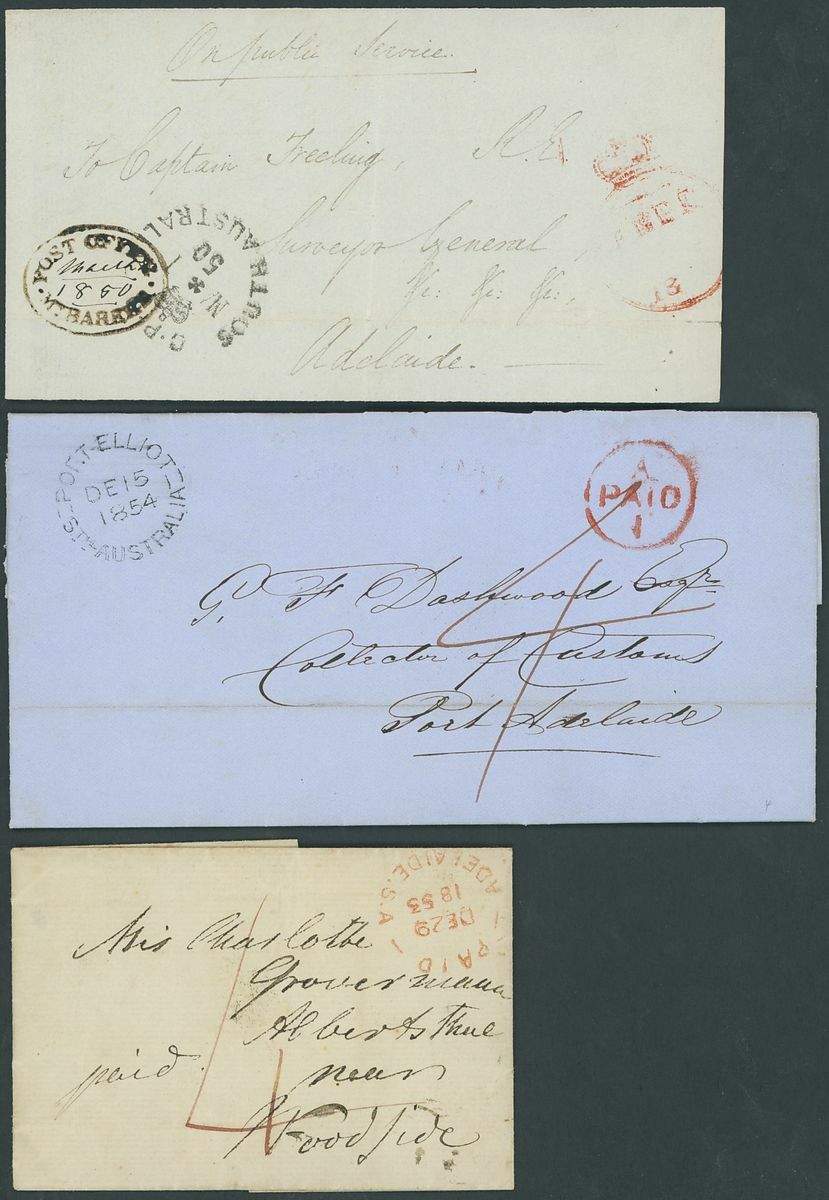 On public Service
To Captain Freeling, R.E.
Surveyor General
&c: &c: &c:
Adelaide.
POST OFFICE
March
1850
Mt. BARKER
SOUTH AUSTRALI
G.P.
50
FREE
13
PORT-ELLIOT
DE 15
1854
STH-AUSTRALIA
A
PAID
1
4
G. F Dashwood Esqre
Collector of Customs
Port Adelaide
ADELAIDE.S.A
1853
DE 29
PAID
Mis Charlotte
Grovermann
Alberts thue
paid. near
Woodside
4